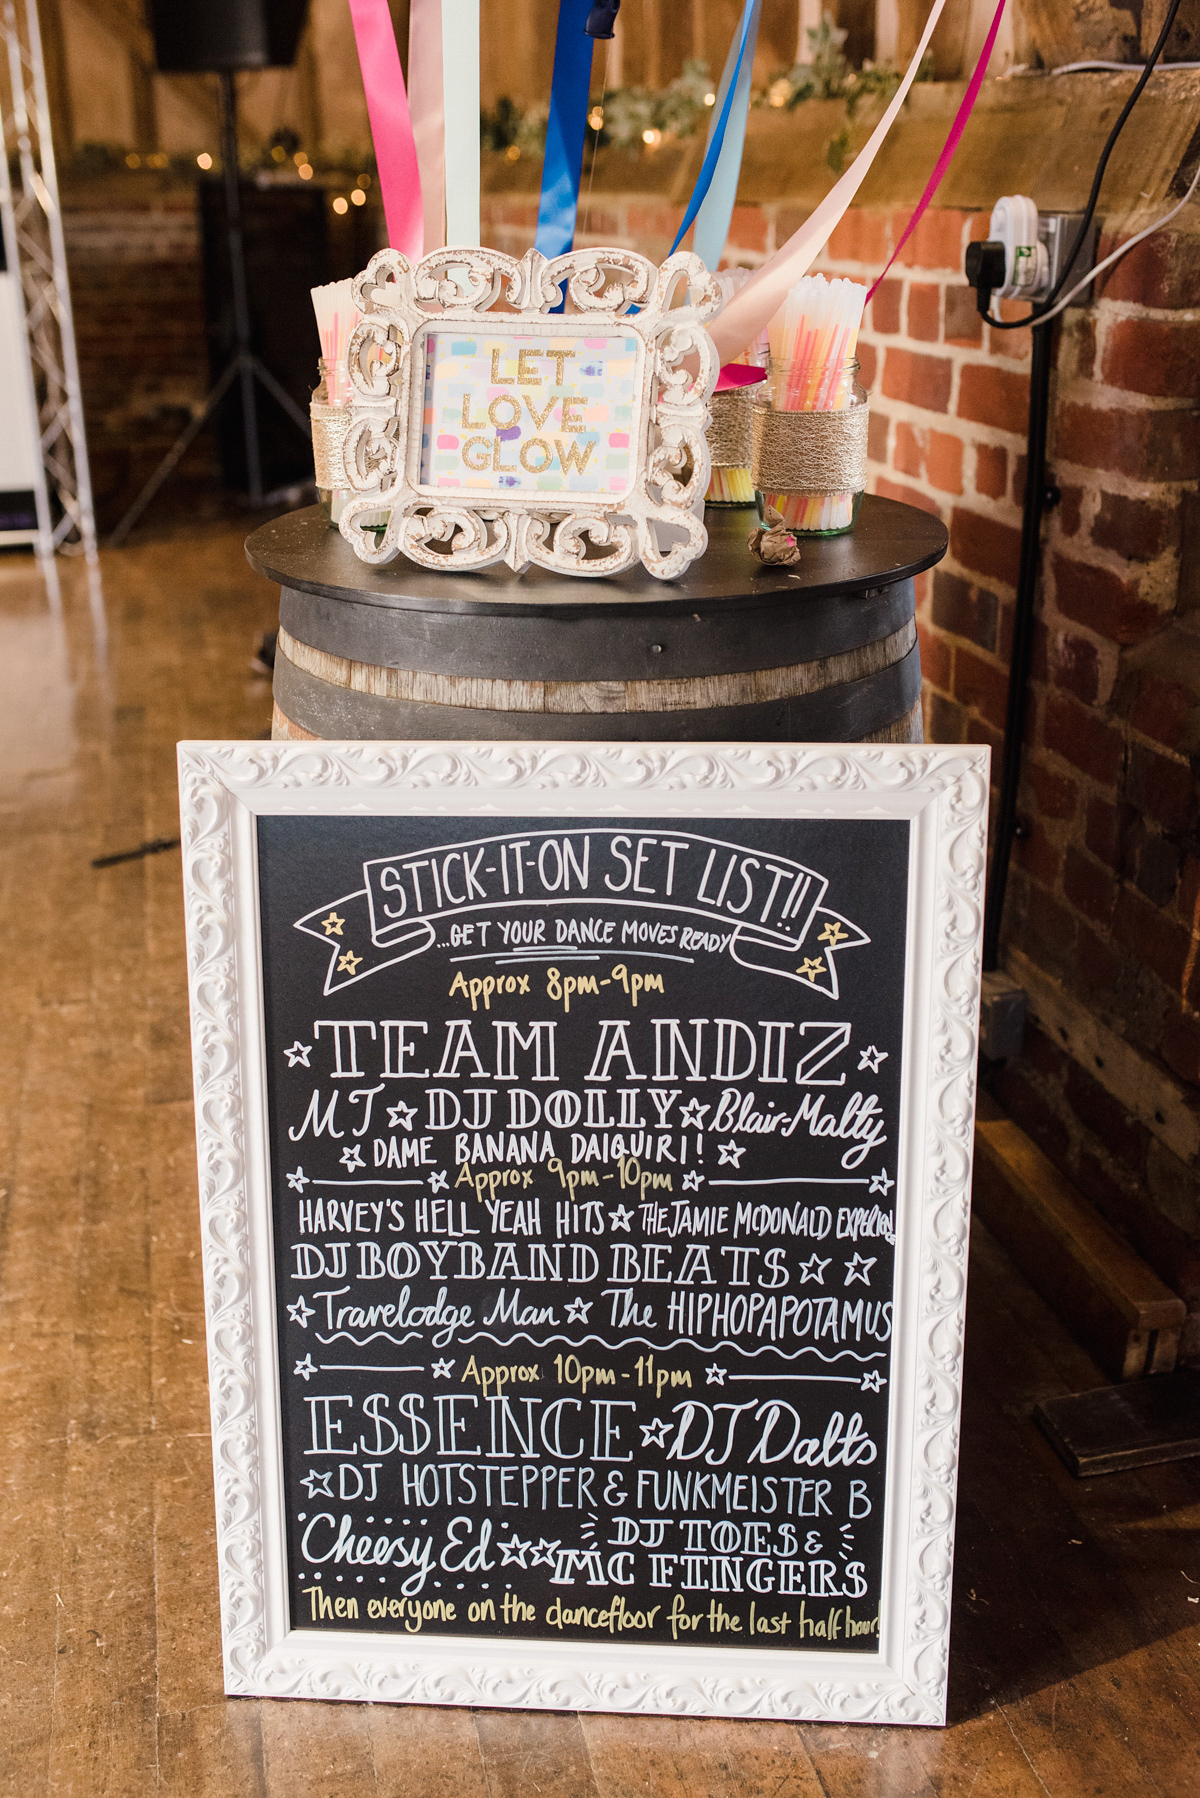 LET
LOVE
GLOW
STICK-IT-ON SET LIST!!
...GET YOUR DANCE MOVES READY
Approx 8pm-9pm
TEAM ANDIZ
MJ DJ DOLLY Blair-Malty
DAME BANANA DAIQUIRI!
Approx 9pm-10pm
HARVEY'S HELL YEAH HITS THE JAMIE MCDONALD EXPERIENCE
DJ BOYBAND BEATS
Travelodge Man The HIPHOPAPOTAMUS
Approx 10pm-11pm
ESSENCE DJ Dalts
DJ HOTSTEPPER & FUNKMEISTER B
Cheesy Ed DJ TOES &
MC FINGERS
Then everyone on the dancefloor for the last half hour!